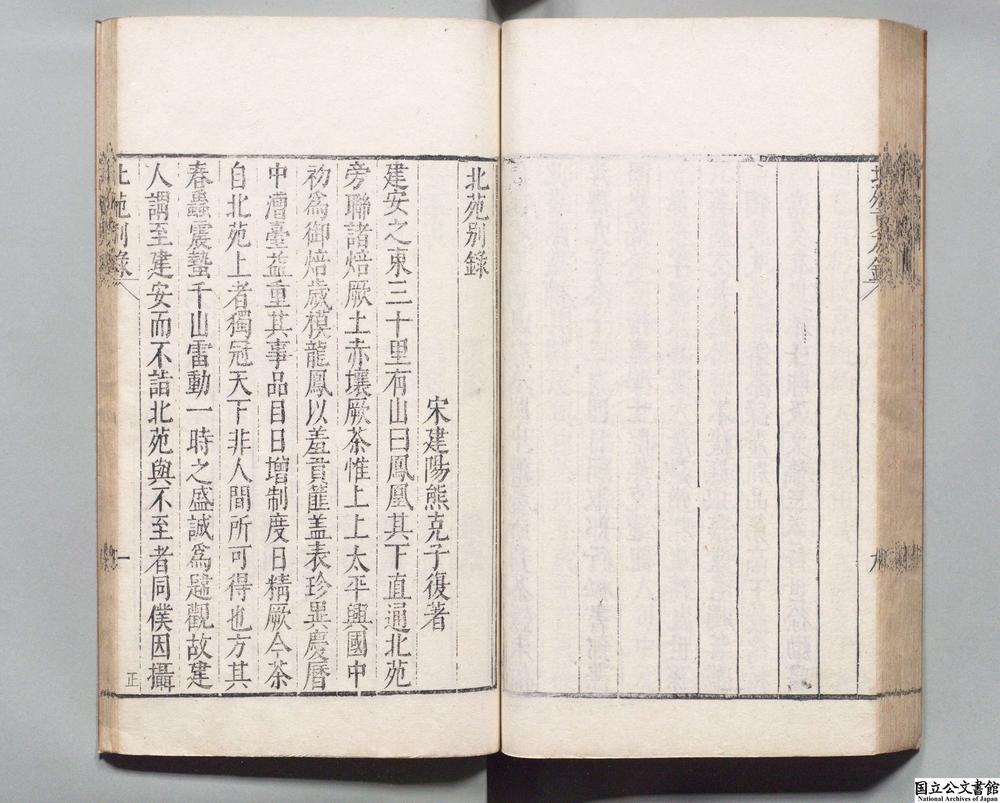 北苑别錄
宋建陽熊克子復著
建安之東三十里有山曰鳳凰其下直通北苑
旁聯諸焙厥土赤壤厥茶惟上上太平興國中
初爲御焙歲模龍鳳以羞貢篚盖表珍異慶曆
中漕臺益重其事品目日增制度日精厥今茶
自北苑上者獨冠天下非人間所可得也方其
春蟲震蟄千山雷動一時之盛誠爲偉觀故建
人謂至建安而不詣北苑與不至者同僕因攝
北苑别錄
一
正
九
国立公文書館
National Archives of Japan